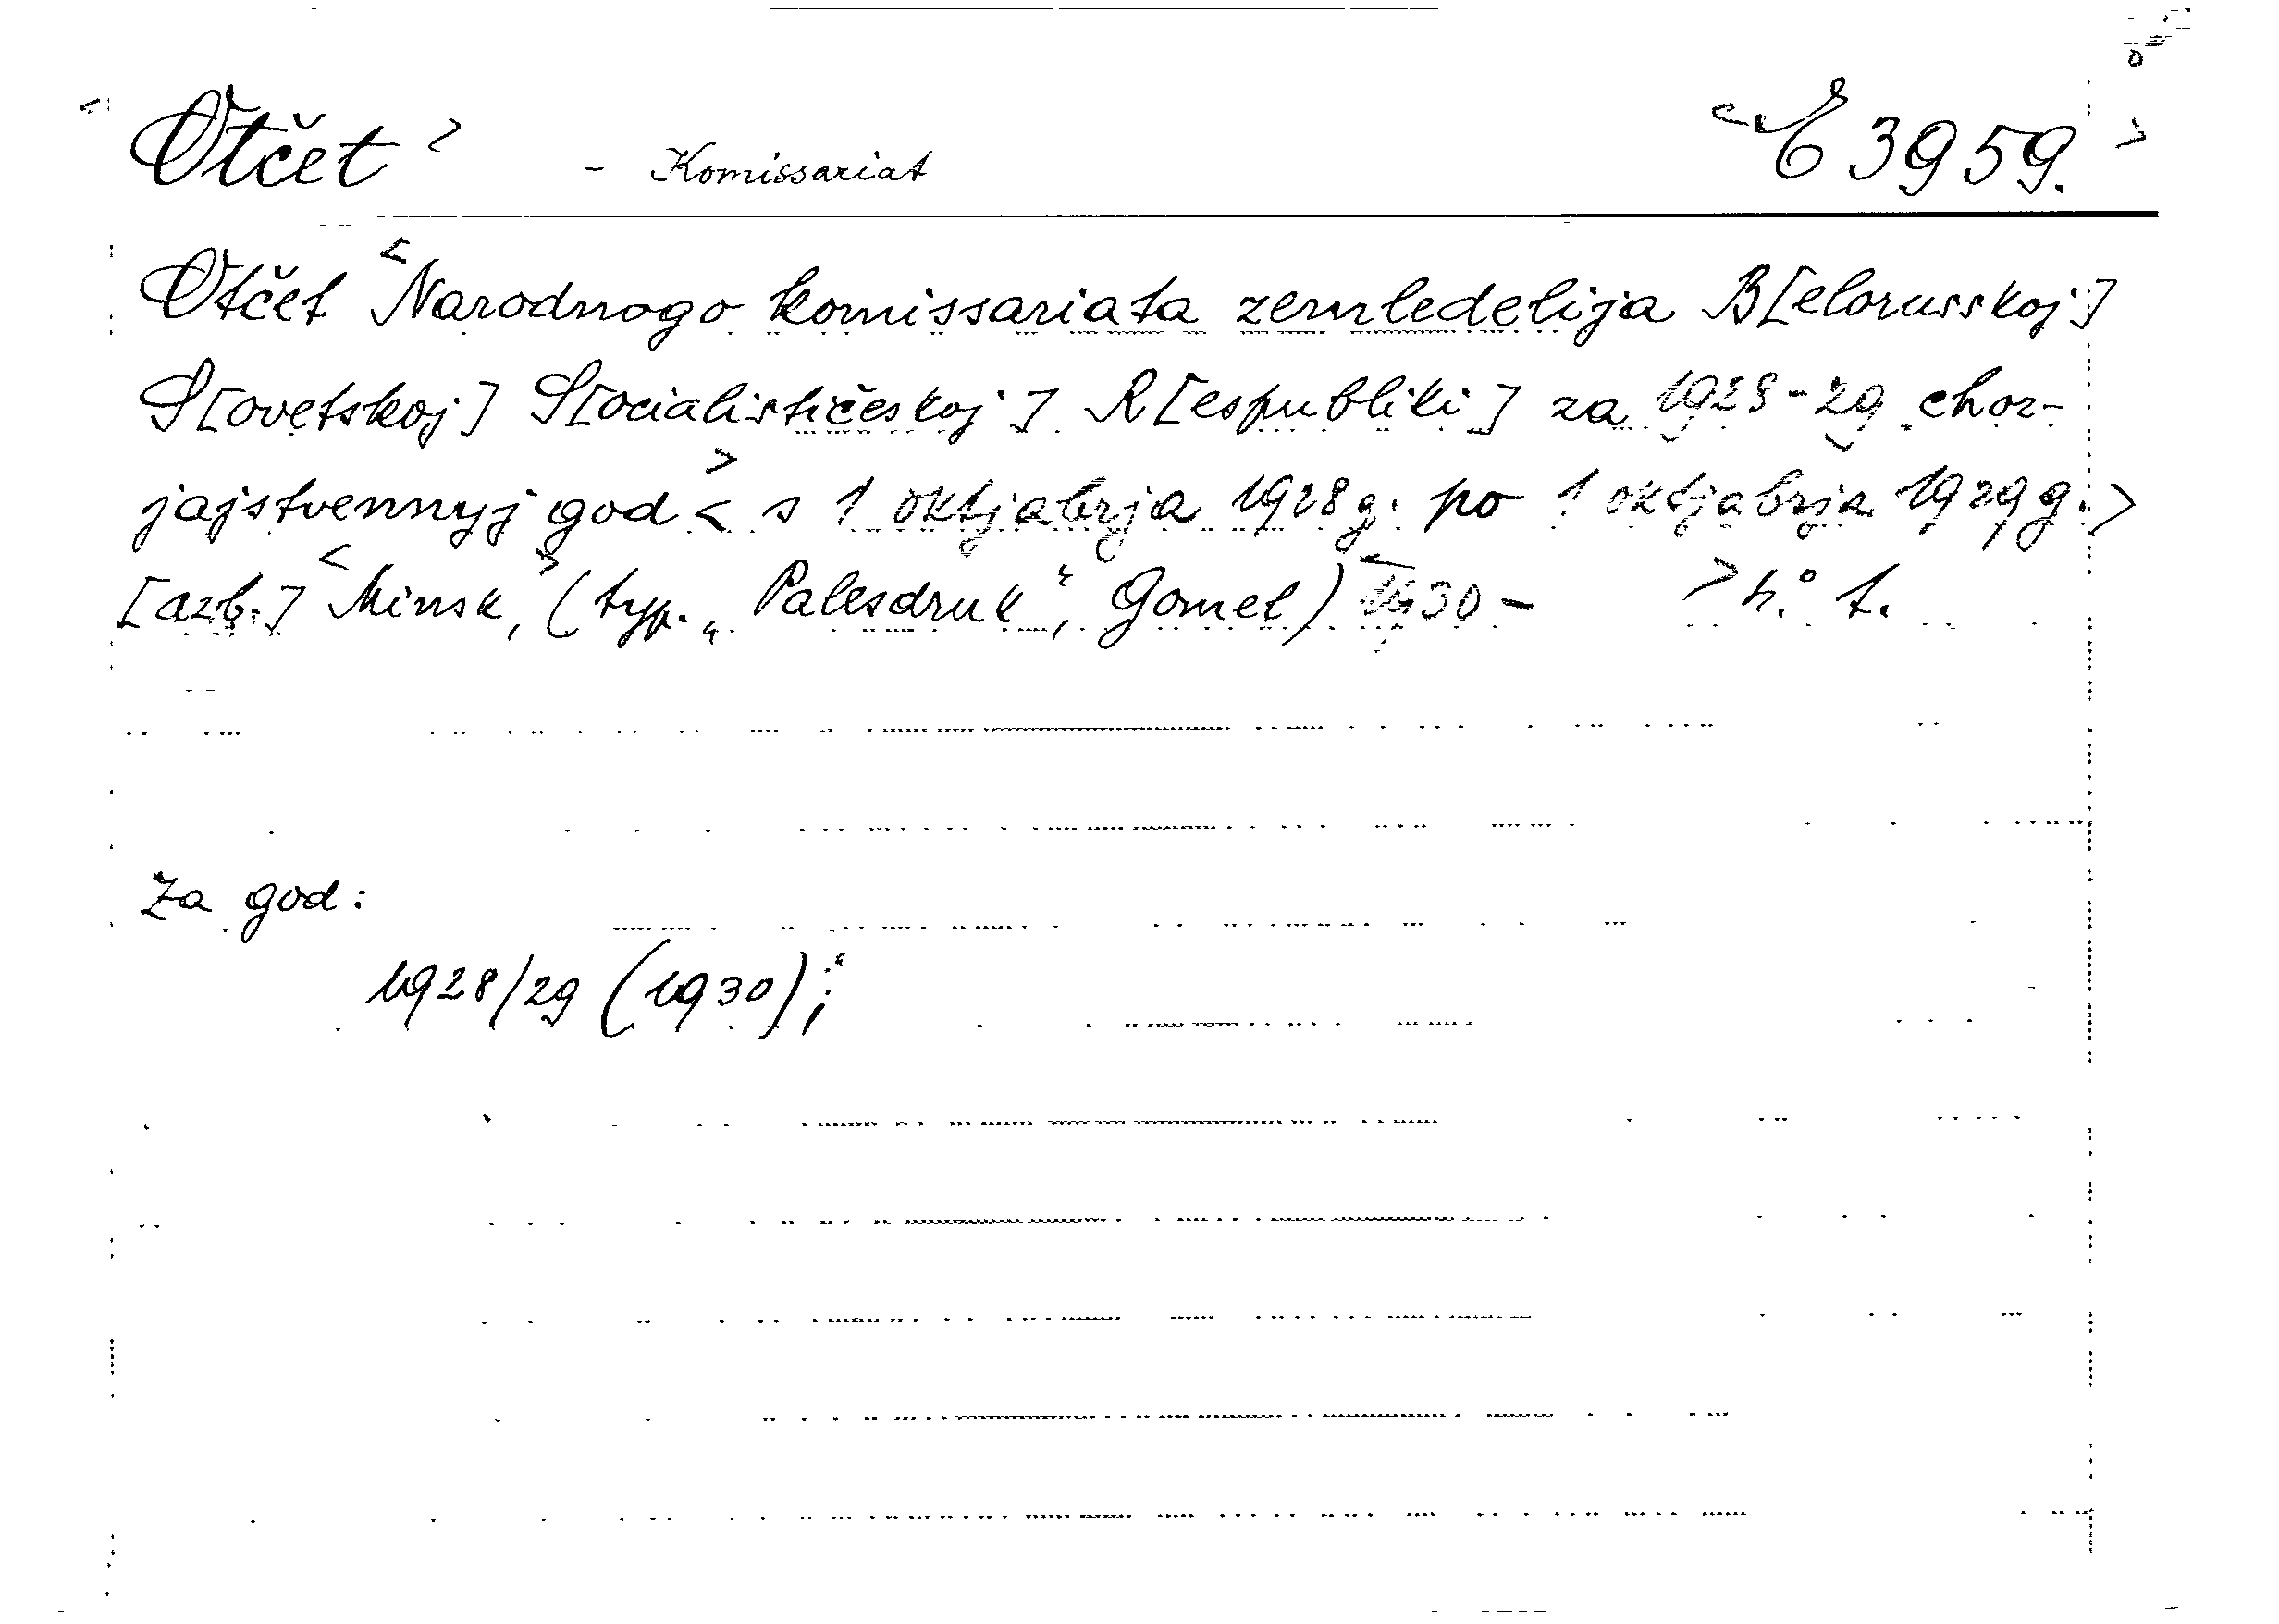 <Otčet> - Komissariat <E 3959.>
Otčet <Narodnogo komissariata zemledelija B[elorusskoj]
S[ovetskoj] S[ocialističeskoj] R[espubliki] za 1928-29 choz-
jajstvennyj god> <s 1 oktjabrja 1928 g. po 1 oktjabrja 1929 g.>
[azb.] <Minsk,> (typ. „Palesdruk“, Gomel) <1930 - > 4° f.
Za god:
1928/29 (1930);